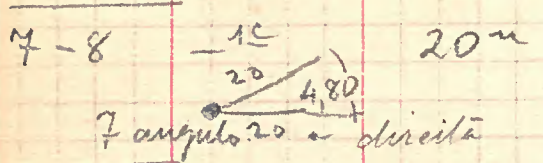 7-8 — 1c 20m
20
4,80
7 angulo 20 a direita